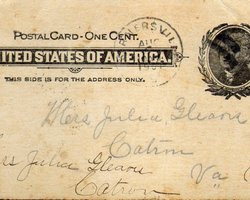 POSTAL CARD - ONE CENT.
UNITED STATES OF AMERICA.
THIS SIDE IS FOR THE ADDRESS ONLY.
AUG
Miss Julia Gleaves
Catron
Va
Julia Gleaves
Catron